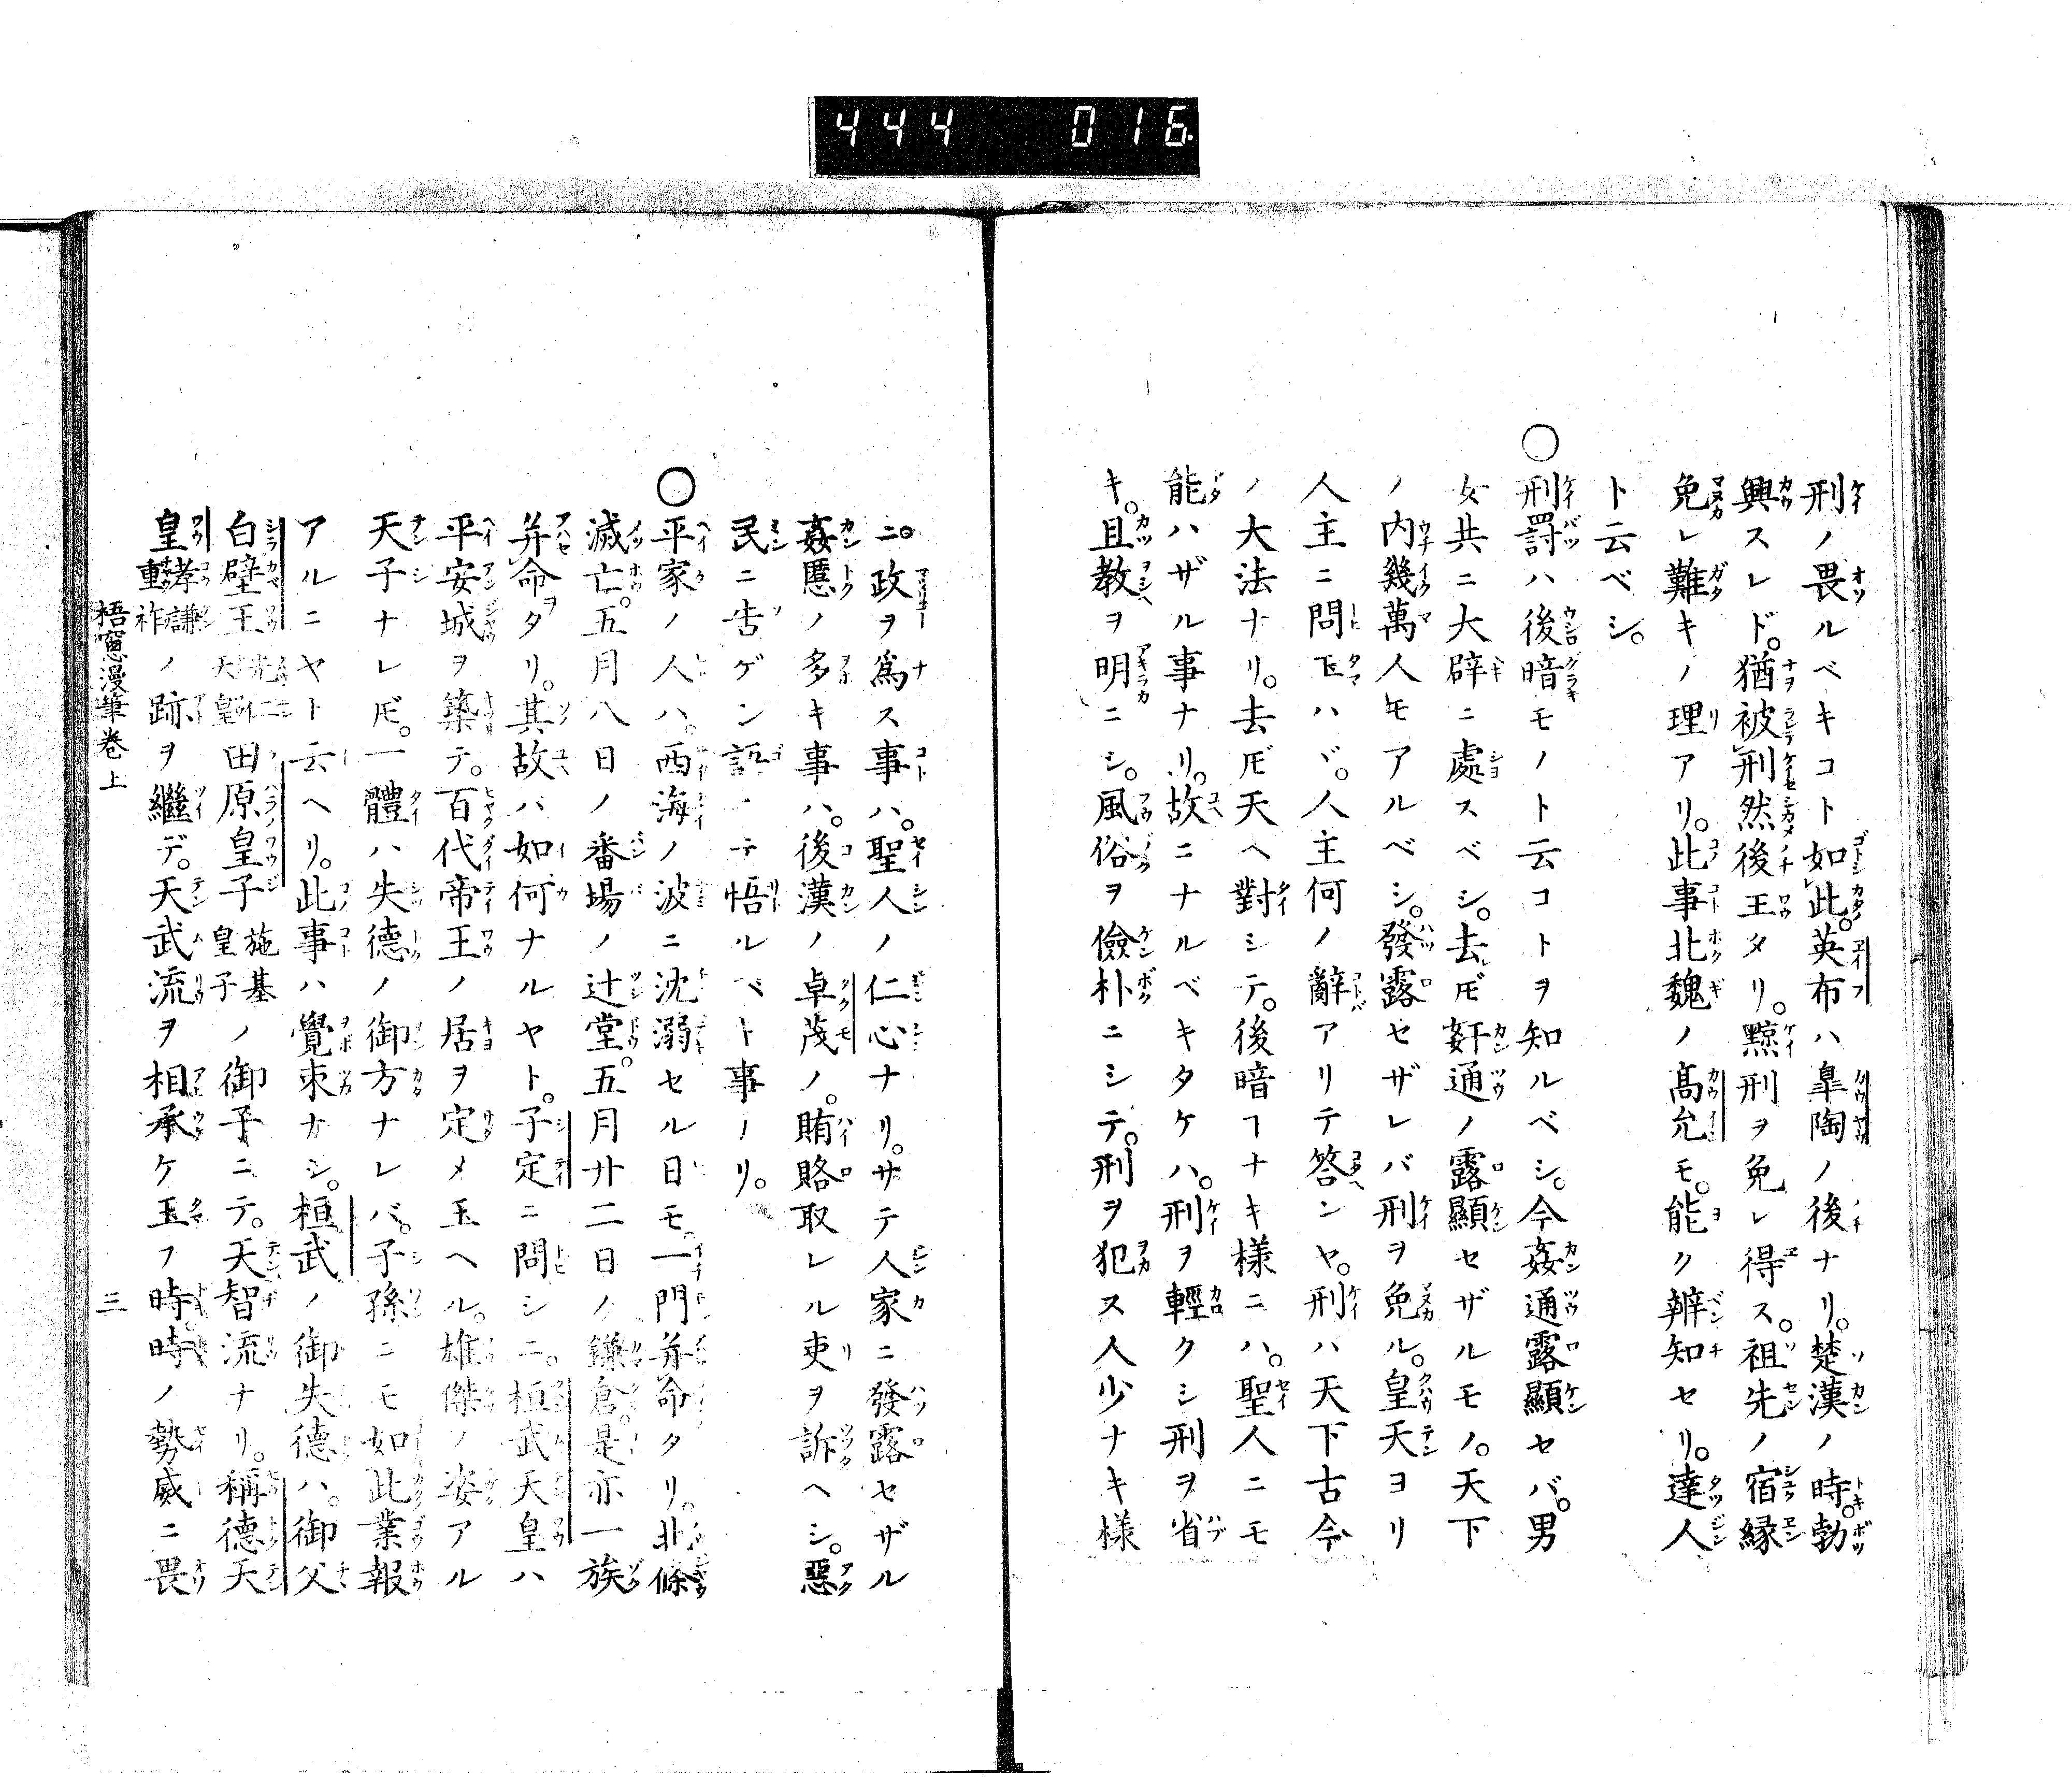 444 016
刑ノ畏ルベキコト如此。英布ハ皐陶ノ後ナリ。楚漢ノ時。勃
興スレド。猶被刑然後王タリ。黥刑ヲ免レ得ス。祖先ノ宿縁
免レ難キノ理アリ。此事北魏ノ高允モ。能ク辨知セリ。達人
ト云ベシ。
○刑罰ハ後暗キモノト云コトヲ知ルベシ。今姦通露顯セバ。男
女共ニ大辟ニ處スベシ。去𪜈姧通ノ露顯セザルモノ。天下
ノ内幾萬人モアルベシ。發露セザレバ刑ヲ免ル。皇天ヨリ
人主ニ問玉ハヾ。人主何ノ辭アリテ答ンヤ。刑ハ天下古今
ノ大法ナリ。去𪜈天ヘ對シテ。後暗ヿナキ様ニハ。聖人ニモ
能ハザル事ナリ。故ニナルベキタケハ。刑ヲ輕クシ刑ヲ省
キ。且教ヲ明ニシ。風俗ヲ儉朴ニシテ。刑ヲ犯ス人少ナキ様
ニ。政ヲ爲ス事ハ。聖人ノ仁心ナリ。サテ人家ニ發露セザル
姦慝ノ多キ事ハ。後漢ノ卓茂ノ。賄賂取レル吏ヲ訴ヘシ。惡
民ニ告ゲン語ニテ悟ルベト事ノリ。
○平家ノ人ハ。西海ノ波ニ沈溺セル日モ。一門并命タリ。北條
滅亡。五月八日ノ番場ノ辻堂。五月廿二日ノ鎌倉。是亦一族
并命タリ。其故ハ如何ナルヤト。子定ニ問シニ。桓武天皇ハ
平安城ヲ築テ。百代帝王ノ居ヲ定メ玉ヘル。雄傑ノ姿アル
天子ナレ𪜈。一體ハ失德ノ御方ナレバ。子孫ニモ如此業報
アルニヤト云ヘリ。此事ハ覺束ナシ。桓武ノ御失德ハ。御父
白壁王光仁天皇田原皇子施基皇子ノ御子ニテ。天智流ナリ。稱德天
皇孝謙重祚ノ跡ヲ繼デ。天武流ヲ相承ケ玉フ時。時ノ勢威ニ畏
梧窻漫筆卷上 三